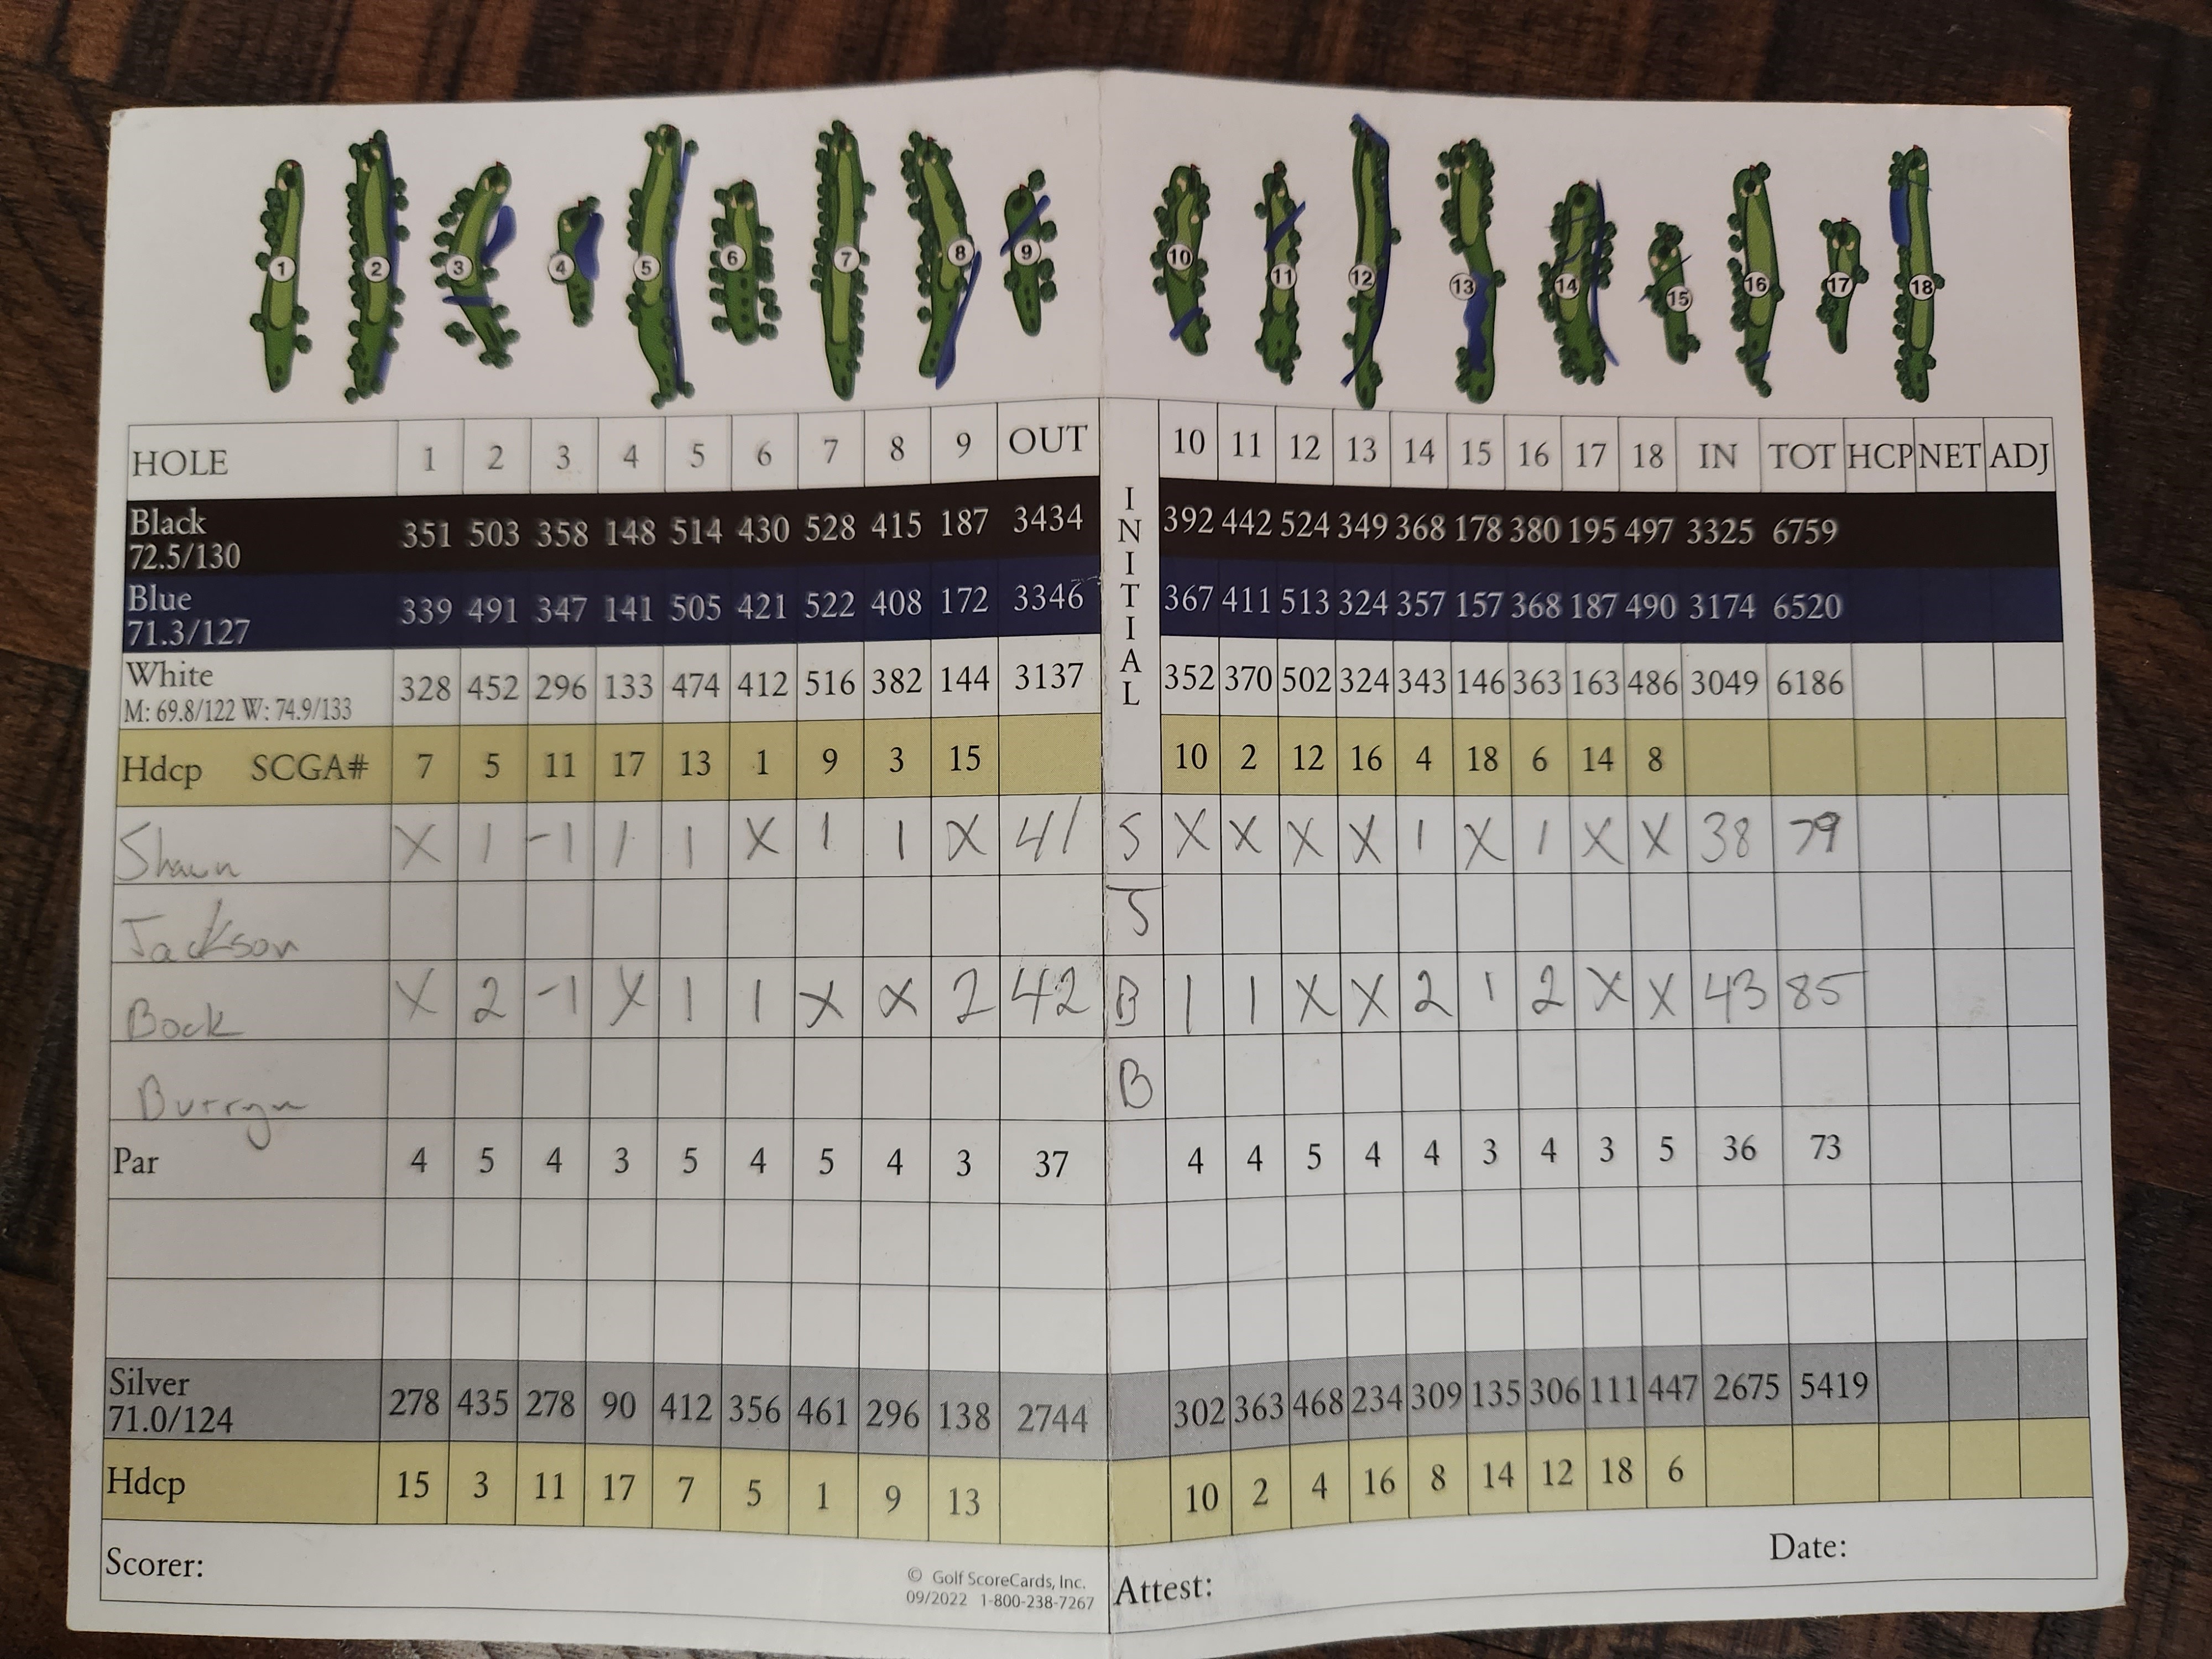 1 2 3 4 5 6 7 8 9 10 11 12 13 14 15 16 17 18
HOLE 1 2 3 4 5 6 7 8 9 OUT INITIAL 10 11 12 13 14 15 16 17 18 IN TOT HCP NET ADJ
Black 351 503 358 148 514 430 528 415 187 3434 392 442 524 349 368 178 380 195 497 3325 6759
72.5/130
Blue 339 491 347 141 505 421 522 408 172 3346 367 411 513 324 357 157 368 187 490 3174 6520
71.3/127
White 328 452 296 133 474 412 516 382 144 3137 352 370 502 324 343 146 363 163 486 3049 6186
M: 69.8/122 W: 74.9/133
Hdcp SCGA# 7 5 11 17 13 1 9 3 15 10 2 12 16 4 18 6 14 8
Shawn X 1 -1 1 1 X 1 1 X 41 S X X X X 1 X 1 X X 38 79
Jackson J
Bock X 2 -1 X 1 1 X X 2 42 B 1 1 X X 2 1 2 X X 43 85
B
Par 4 5 4 3 5 4 5 4 3 37 4 4 5 4 4 3 4 3 5 36 73
Silver 278 435 278 90 412 356 461 296 138 2744 302 363 468 234 309 135 306 111 447 2675 5419
71.0/124
Hdcp 15 3 11 17 7 5 1 9 13 10 2 4 16 8 14 12 18 6
Scorer:
© Golf ScoreCards, Inc.
09/2022 1-800-238-7267
Attest:
Date: